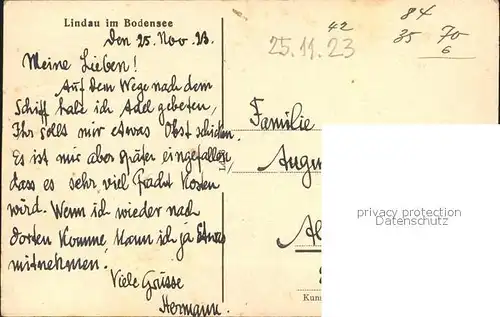 Lindau im Bodensee
Den 25. Nov. 23.
Meine Lieben!
Auf dem Wege nach dem
Schiff habe ich Adel gebeten,
Ihr solls mir etwas Obst schicken.
Es ist mir aber später eingefallen
dass es sehr viel Fracht kosten
wird. Wenn ich wieder nach
dorten komme, kann ich ja etwas
mitnehmen.
Viele Grüsse
Hermann.
42
25.11.23
84
35
70
6
Familie
Augu
Al
Kuns
privacy protection
Datenschutz